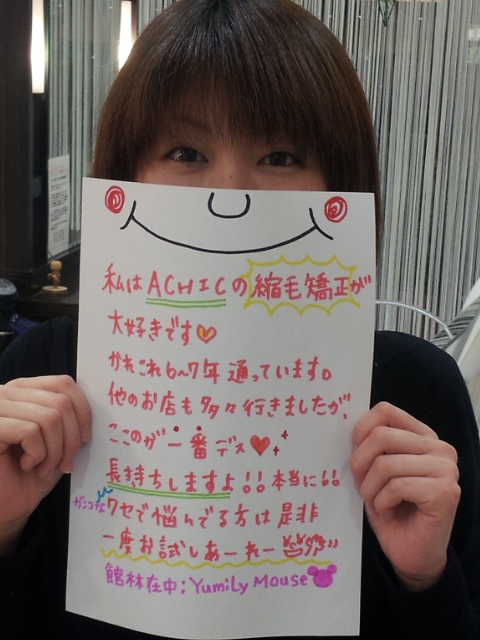 私はACHICの縮毛矯正が
大好きです♡
かれこれ6〜7年通っています。
他のお店も多々行きましたが、
ここのが一番デス♥
長持ちしますよ!!本当に!!
ガンコなクセで悩んでる方は是非
一度お試しあーれー
館林在中:Yumily Mouse